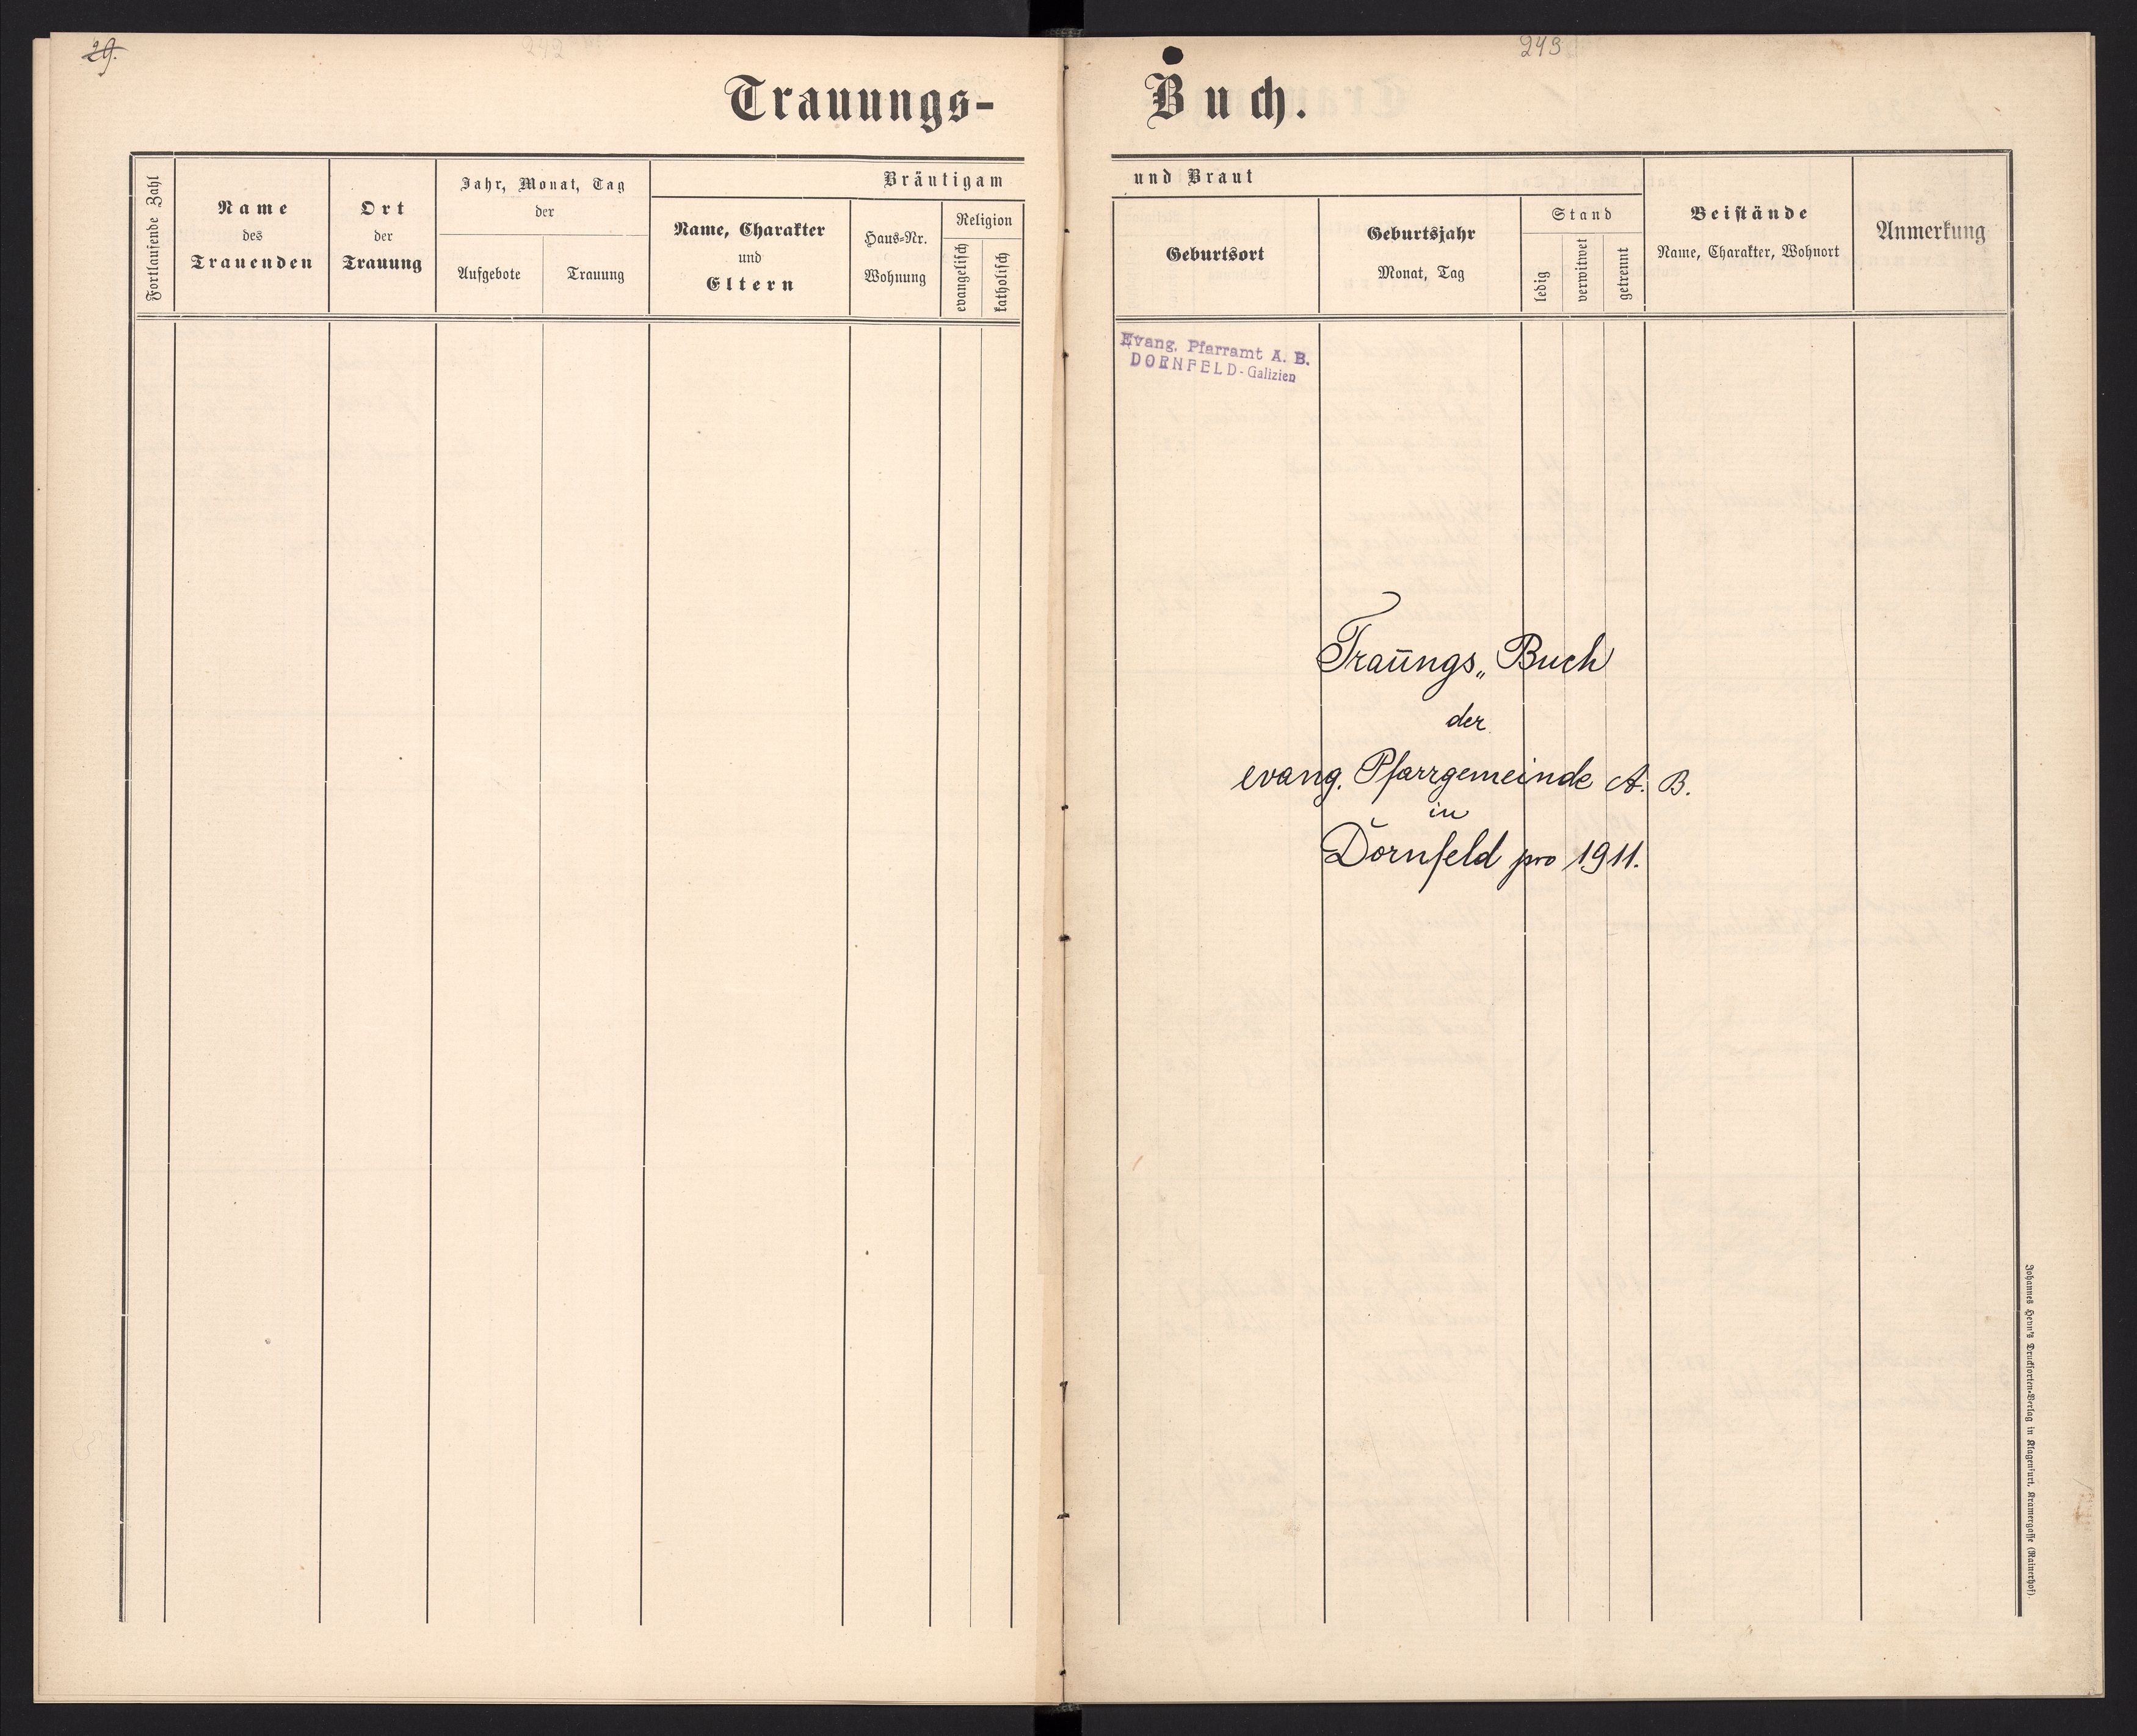 29.
243
Trauungs-
Buch.
Fortlaufende Zahl
Name
des
Trauenden
Ort
der
Trauung
Jahr, Monat, Tag
der
Aufgebote
Trauung
Bräutigam
Name, Charakter
und
Eltern
Haus-Nr.
Wohnung
Religion
evangelisch
katholisch
und Braut
Geburtsort
Geburtsjahr
Monat, Tag
Stand
ledig
verwitwet
getrennt
Beistände
Name, Charakter, Wohnort
Anmerkung
Evang. Pfarramt A. B.
DORNFELD-Galizien
Traūngs„ Buch
der
evang. Pfarrgemeinde A. B.
in
Dornfeld pro 1911.
Johannes Heyn's Drucksorten-Verlag in Klagenfurt, Kramergasse (Rainerhof).